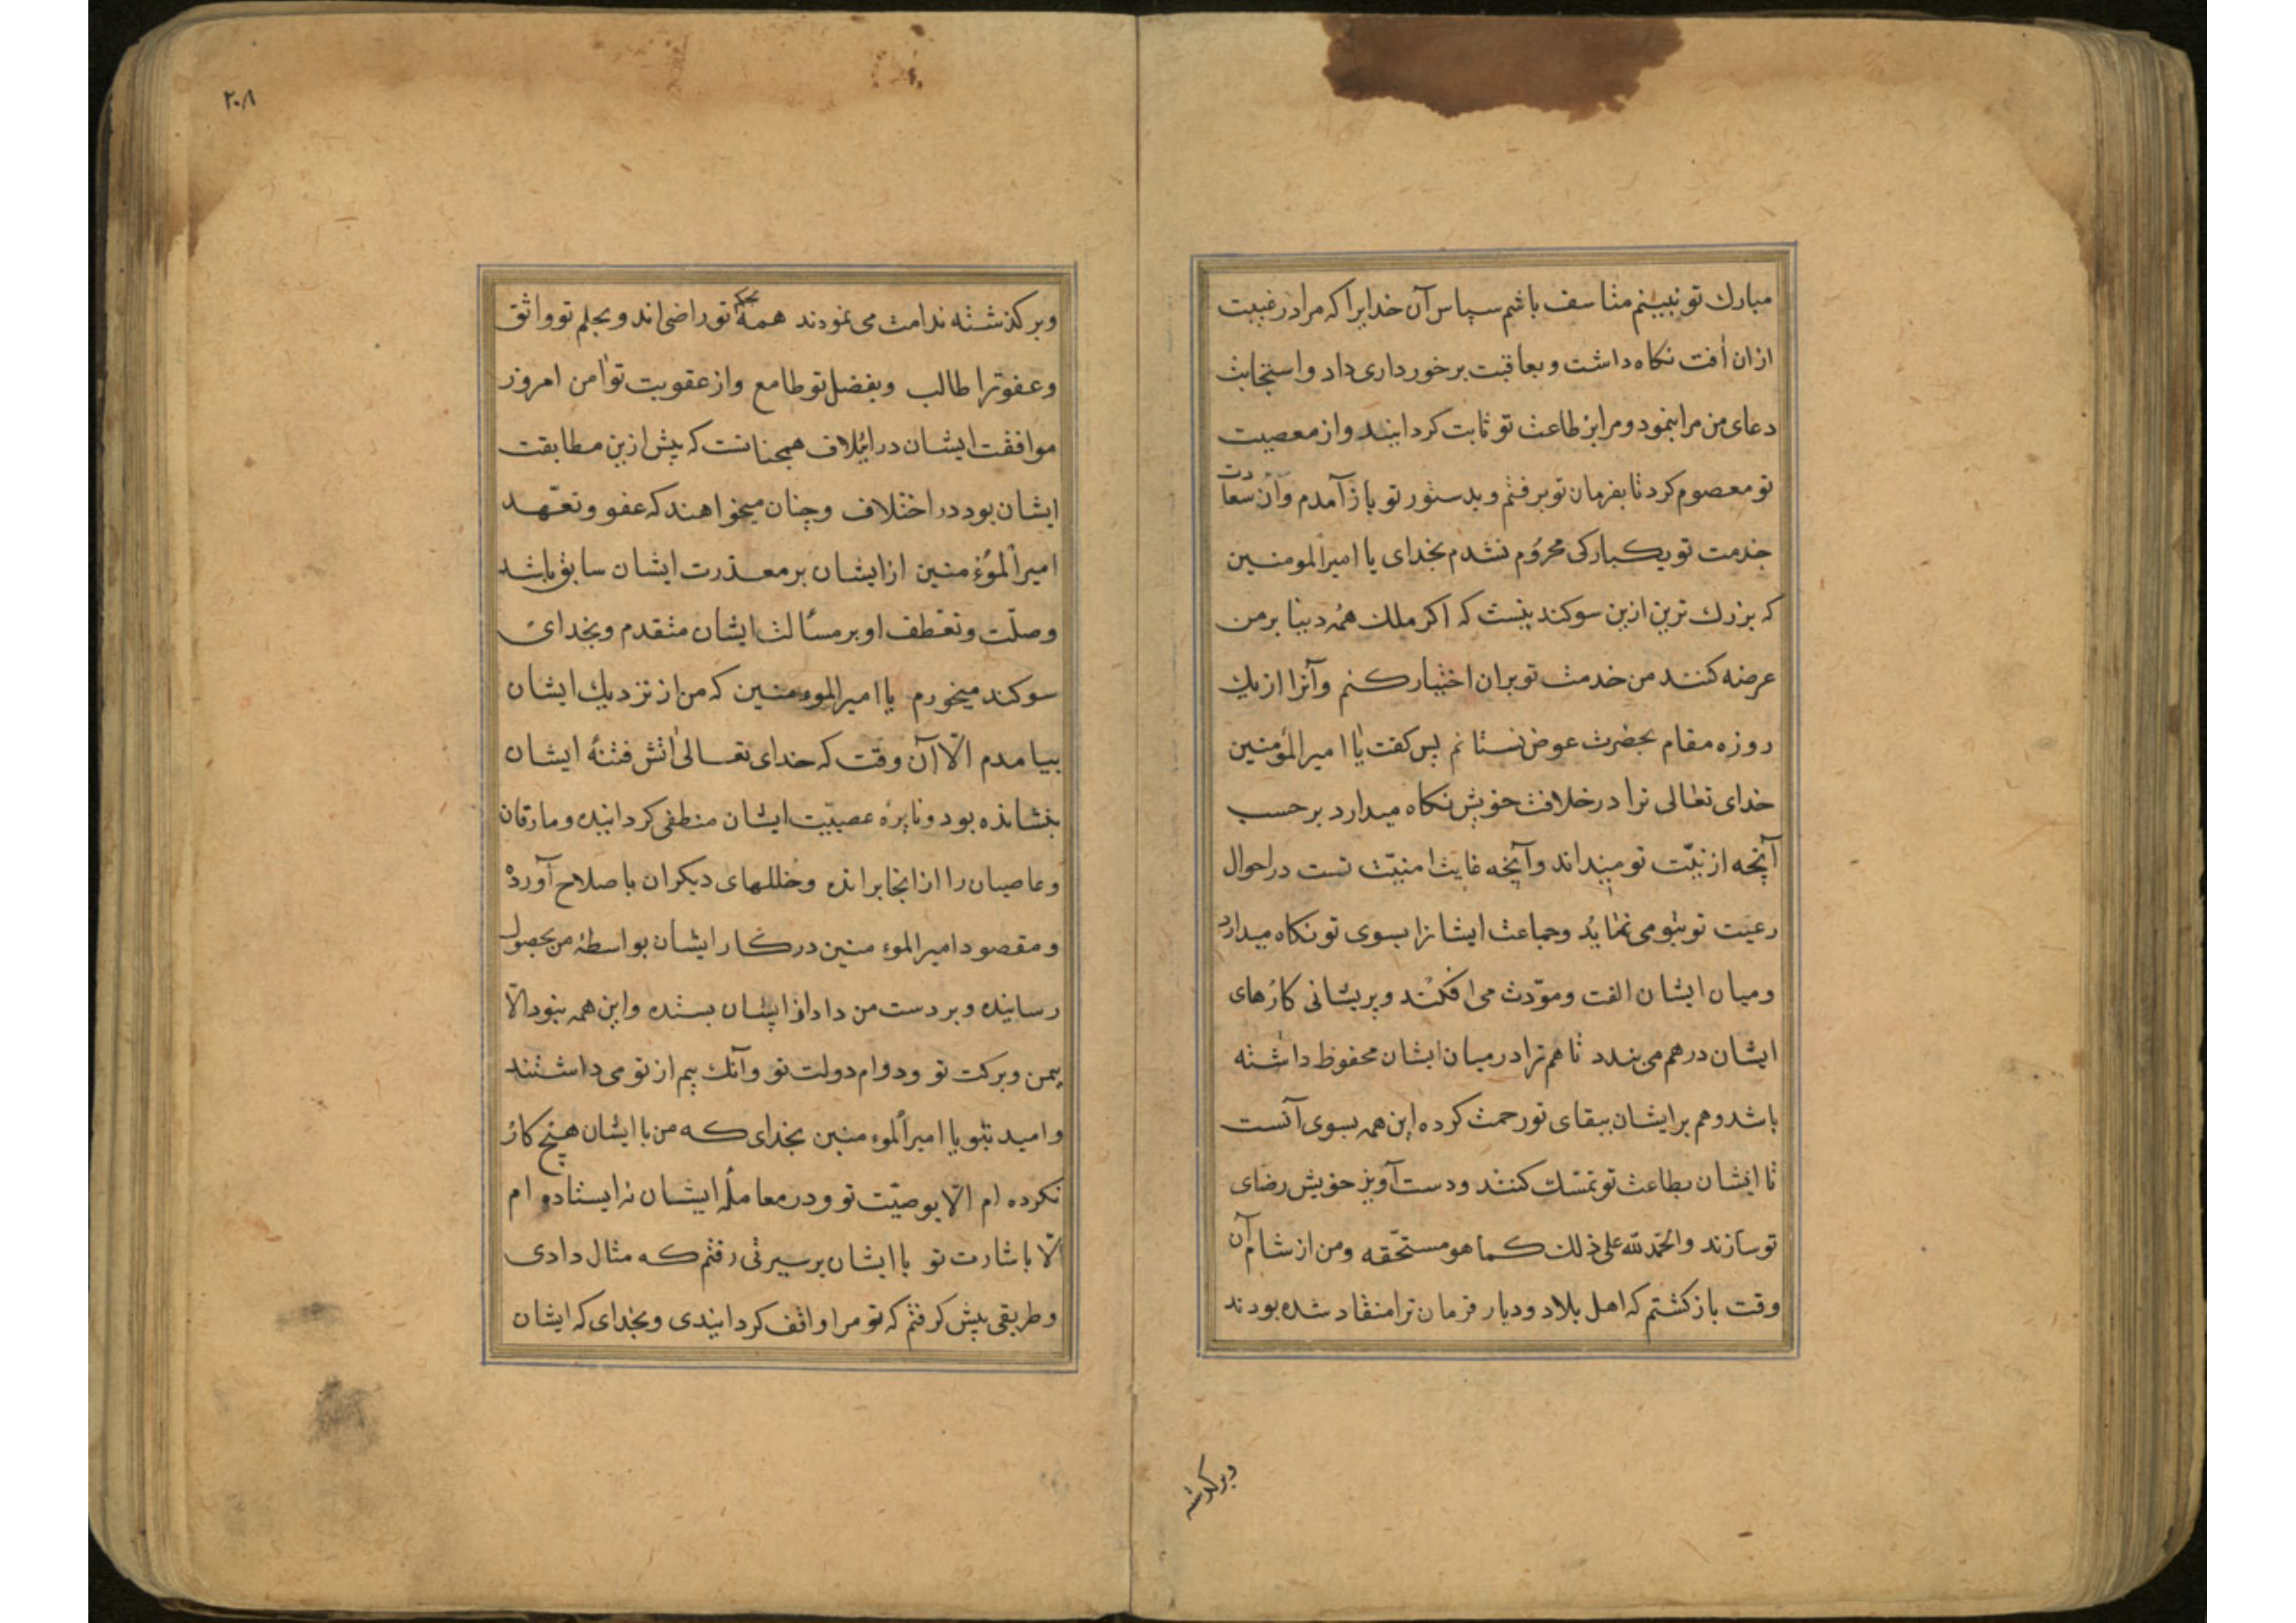 مبارك تو نبینم متاسف باشم سپاس آن خدایرا که مرا در غیبت
ازان آفت نکاه داشت و بعاقبت برخورداری داد و استجابت
دعای من مرا بنمود و مرا بر طاعت تو ثابت کردانید و از معصیت
تو معصوم کرد تا بفرمان تو برفتم و بدستور تو باز آمدم و از سعادت
خدمت تو یکبارکی محروم نشدم بخدای یا امیرالمومنین
که بزرك ترین ازین سوکند نیست که اکر ملك همه دنیا بر من
عرضه کنند من خدمت تو بران اختیار کنم و آنرا از یك
روزه مقام بحضرت عوض نستانم پس کفت یا امیرالمؤمنین
خدای تعالی ترا در خلافت خویش نکاه میدارد بر حسب
آنچه از نیّت تو میداند و آنچه غایت امنیّت تست در احوال
رعیت تو بتو می نماید و جماعت ایشانرا بسوی تو نکاه میدارد
و میان ایشان الفت و مودّت می افکند و پریشانی کارهای
ایشان درهم می بندد تا هم ترا در میان ایشان محفوظ داشته
باشد و هم بر ایشان ببقای تو رحمت کرده این همه بسوی آنست
تا ایشان بطاعت تو تمسّك کنند و دست آویز خویش رضای
تو سازند والحمد لله علی ذلك كما هو مستحقه و من از شام آن
وقت باز کشتم که اهل بلاد و دیار فرمان ترا منقاد شده بودند
وبر کذشته
۲۰۸
وبر کذشته ندامت می نمودند همه بحکم تو راضی اند و بحلم تو واثق
و عفو ترا طالب و بفضل تو طامع و از عقوبت تو امن امروز
موافقت ایشان در ایتلاف همچنانست که پیش ازین مطابقت
ایشان بود در اختلاف و چنان میخواهند که عفو و تعهّد
امیرالمؤمنین از ایشان بر معذرت ایشان سابق باشد
و صلّت و تعطف او بر مسألت ایشان متقدم و بخدای
سوکند میخورم یا امیرالموءمنین که من از نزدیك ایشان
بیامدم الّا آن وقت که خدای تعالی اتش فتنهٔ ایشان
بنشانده بود و نایرهٔ عصبیّت ایشان منطفی کردانیده و مارقان
و عاصیان را از انجا برانده و خللهای دیکران باصلاح آورده
و مقصود امیرالموءمنین در کار ایشان بواسطهٔ من بحصول
رسانیده و بر دست من داد از ایشان بستده و این همه نبود الّا
بیمن و برکت تو و دوام دولت تو و آنك بیم از تو می داشتند
و امید بتو یا امیرالموءمنین بخدای که من با ایشان هیچ کار
نکرده ام الّا بوصیّت تو و در معاملهٔ ایشان نه ایستاده ام
الّا باشارت تو با ایشان بر سیرتی رفتم که مثال دادی
و طریقی پیش کرفتم که تو مرا واقف کردانیدی و بخدای که ایشان